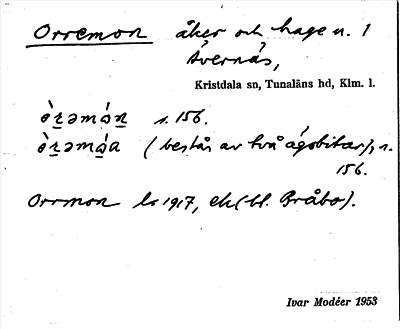 Orremon åker och hage u. 1
Åvernäs,
Kristdala sn, Tunaläns hd, Klm. l.
òrəmón s. 156.
òrəmóa (består av två ägobitar), s.
156.
Orrmon ls 1917, ek (bl. Bråbo).
Ivar Modéer 1953